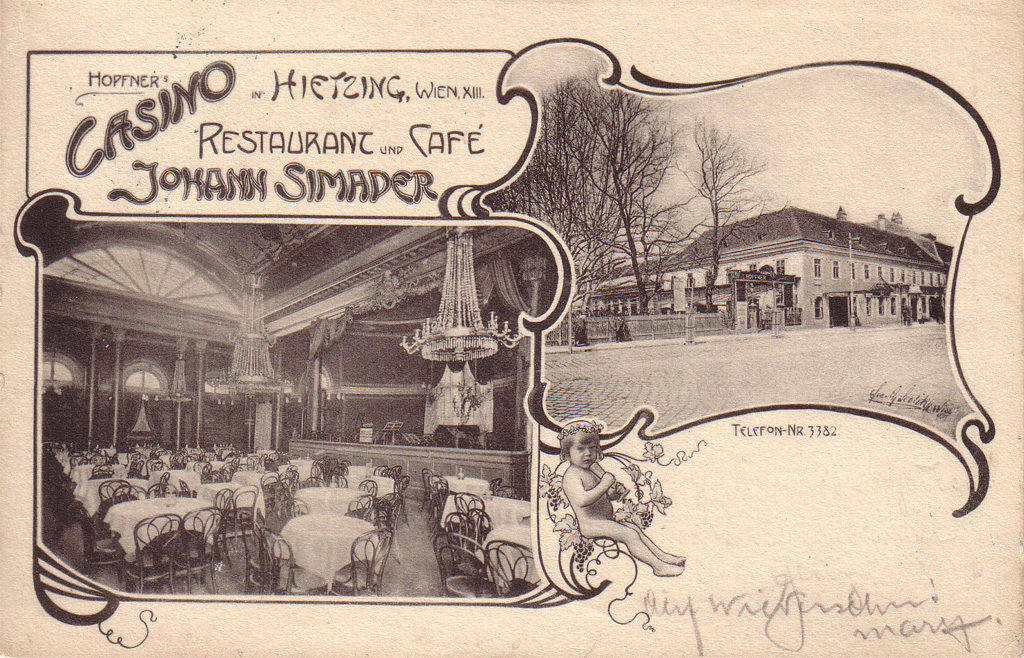 HOPFNER's
CASINO IN HIETZING, WIEN, XIII.
RESTAURANT UND CAFÉ
JOHANN SIMADER
HOPFNER
TELEFON-NR. 3382.
Auf Wiedersehn!